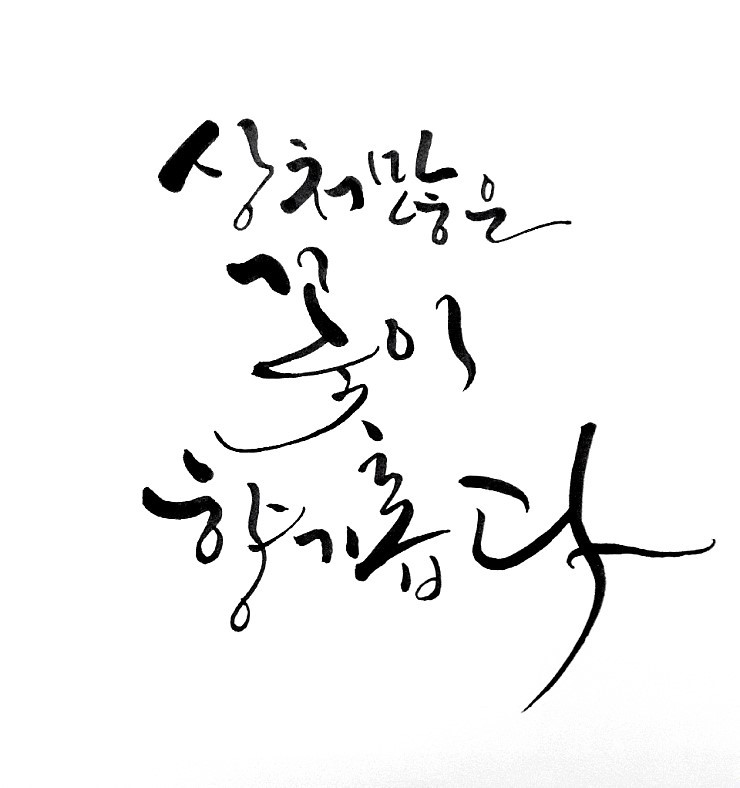 상처많은
꽃이
향기롭다